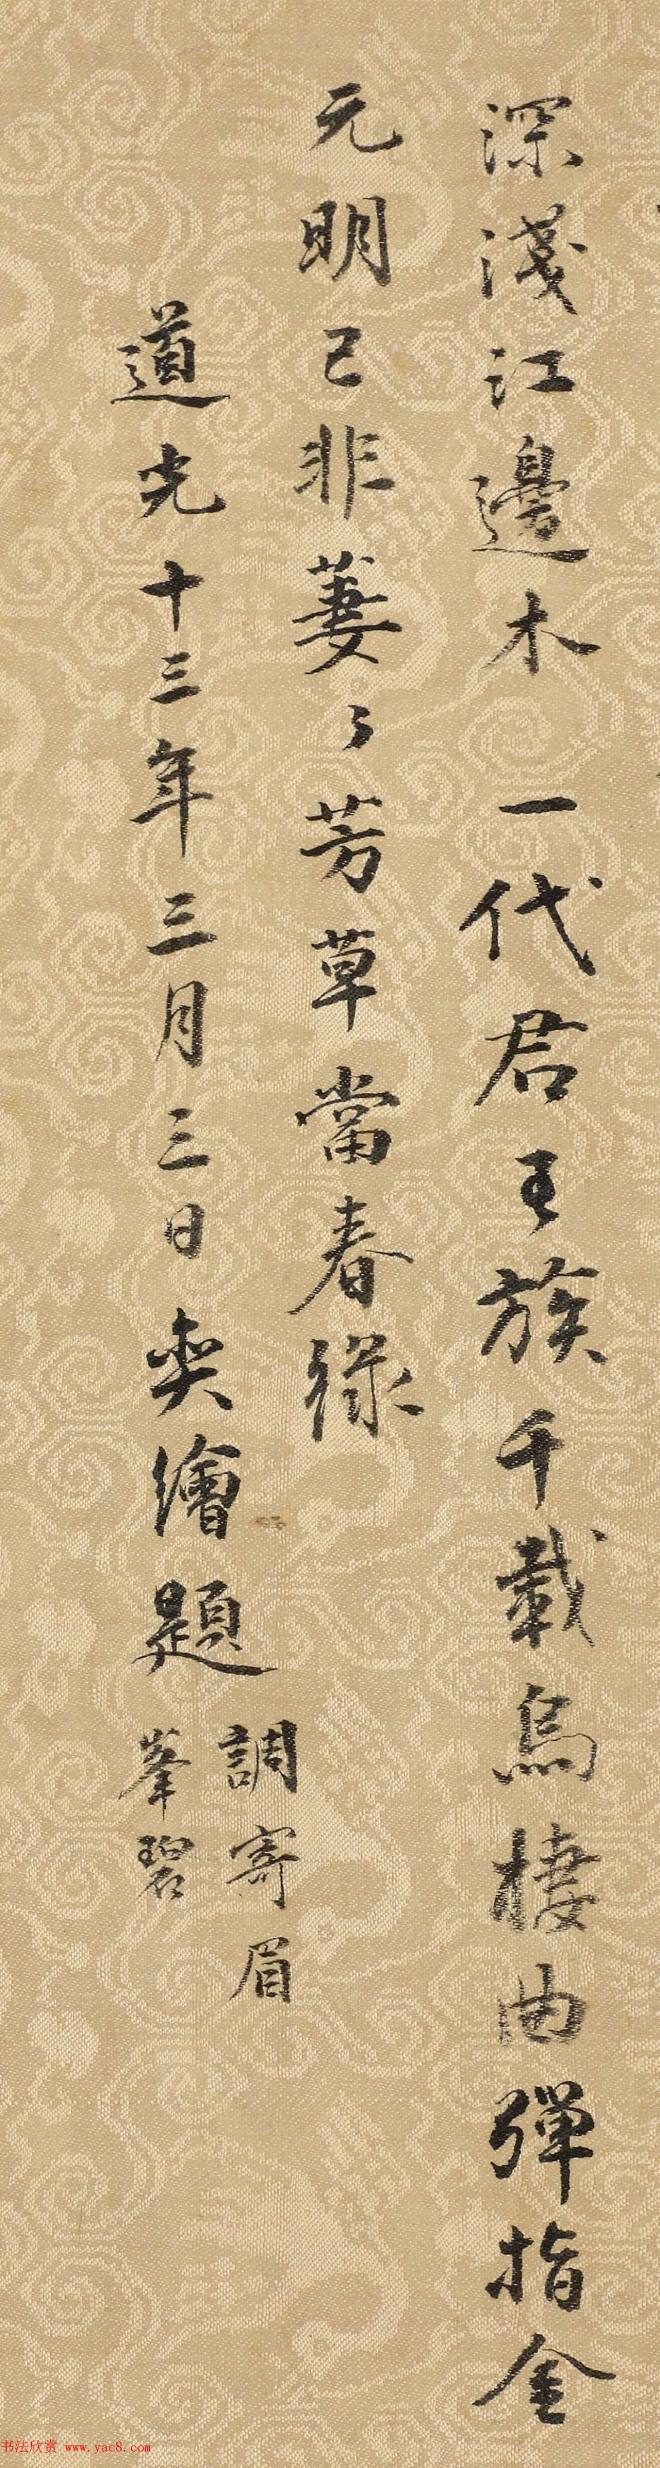 深淺江邊木　一代君王族千載烏棲曲彈指金
元明已非萋々芳草當春綠
道光十三年三月三日奕繪題
調寄眉
峯碧
书法欣赏 www.yac8.com